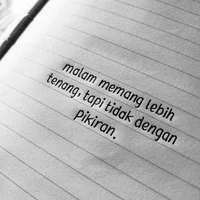 malam memang lebih
tenang, tapi tidak dengan
pikiran.